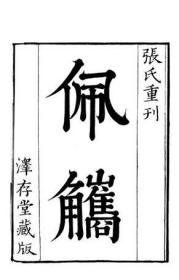 張氏重刊
佩觿
澤存堂藏版